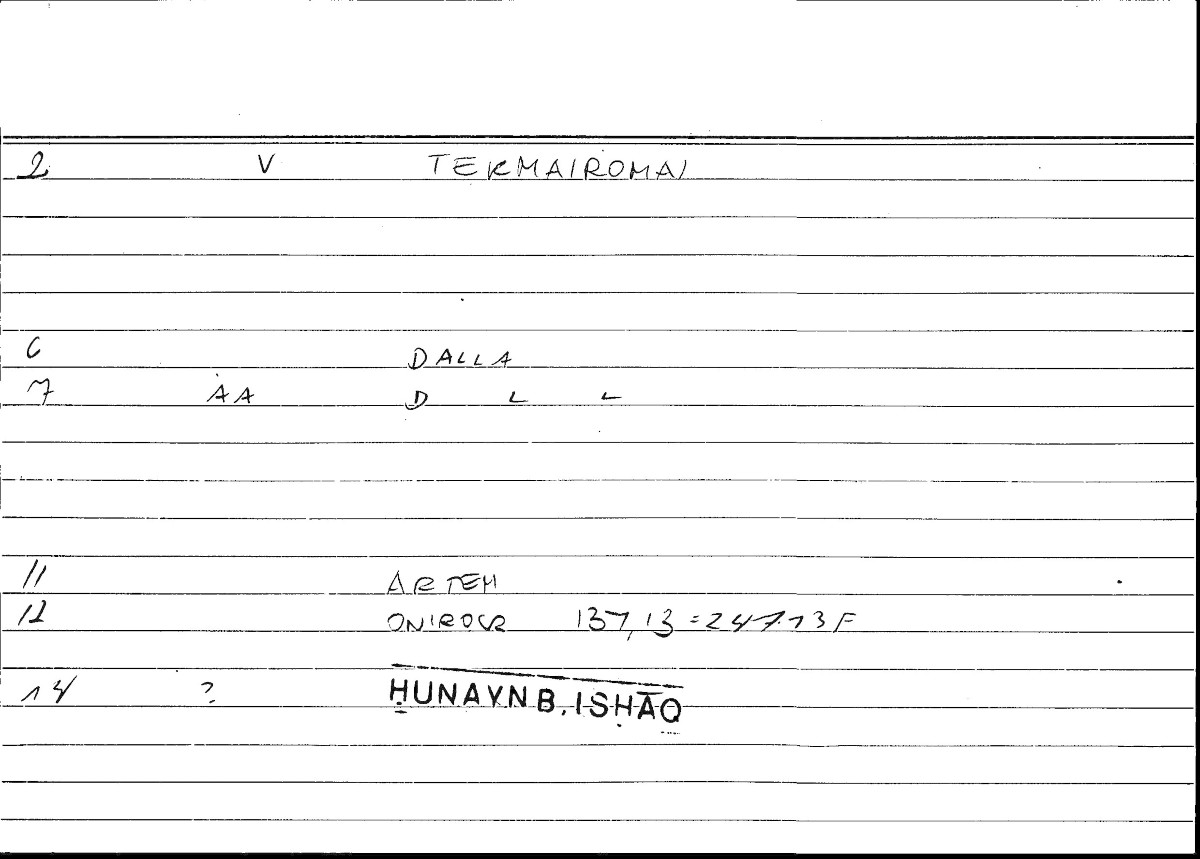 2 V TEKMAIROMAI
6 DALLA
7 AA D L L
11 ARTEM
12 ONIROCR 137,13=247.13F
14 ? ḤUNAYN B. ISḤĀQ